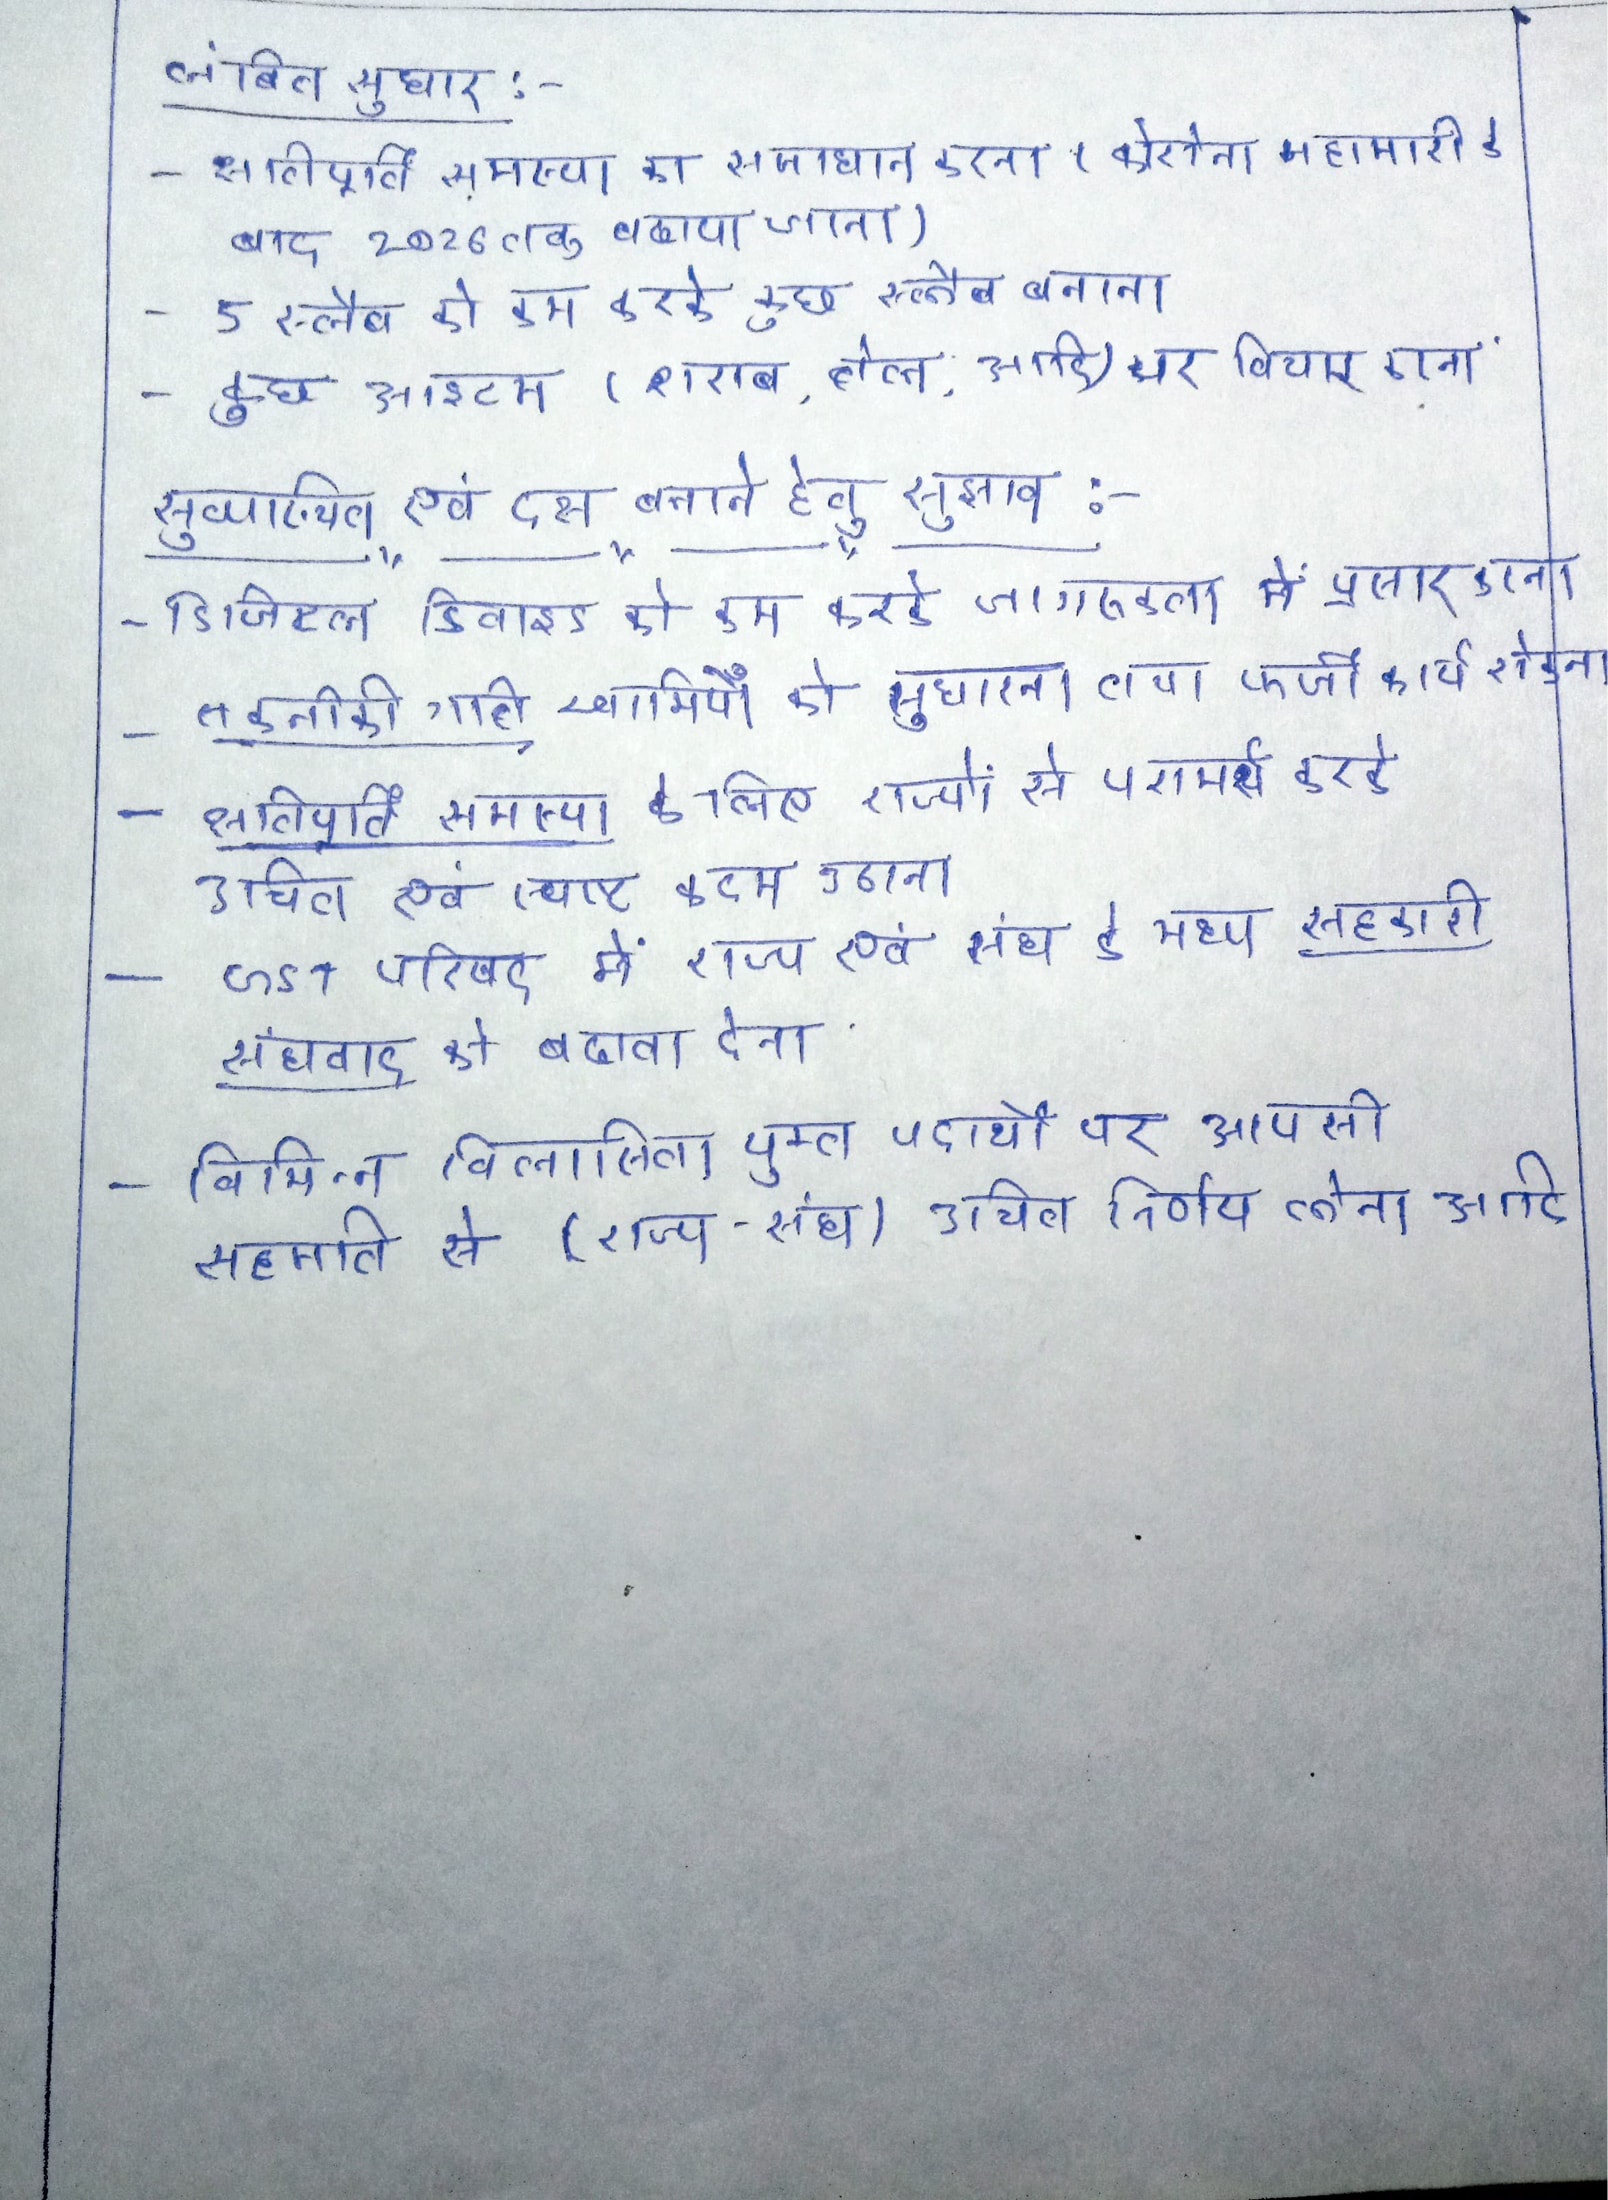 लंबित सुधार :-
- क्षतिपूर्ति समस्या का समाधान करना ( कोरोना महामारी के
बाद 2026 तक बढाया जाना )
- 5 स्लैब को कम करके कुछ स्लैब बनाना
- कुछ आइटम ( शराब, तेल, आदि) पर विचार करना
सुव्यवस्थित एवं दक्ष बनाने हेतु सुझाव :-
- डिजिटल डिवाइड को कम करके जागरूकता में प्रसार करना
- तकनीकी गति खामियों को सुधारना तथा फर्जी कार्य रोकना
- क्षतिपूर्ति समस्या के लिए राज्यों से परामर्श करके
उचित एवं स्पष्ट कदम उठाना
- GST परिषद में राज्य एवं संघ के मध्य सहकारी
संघवाद को बढावा देना
- विभिन्न विलासिता युक्त पदार्थों पर आपसी
सहमति से (राज्य - संघ) उचित निर्णय लेना आदि